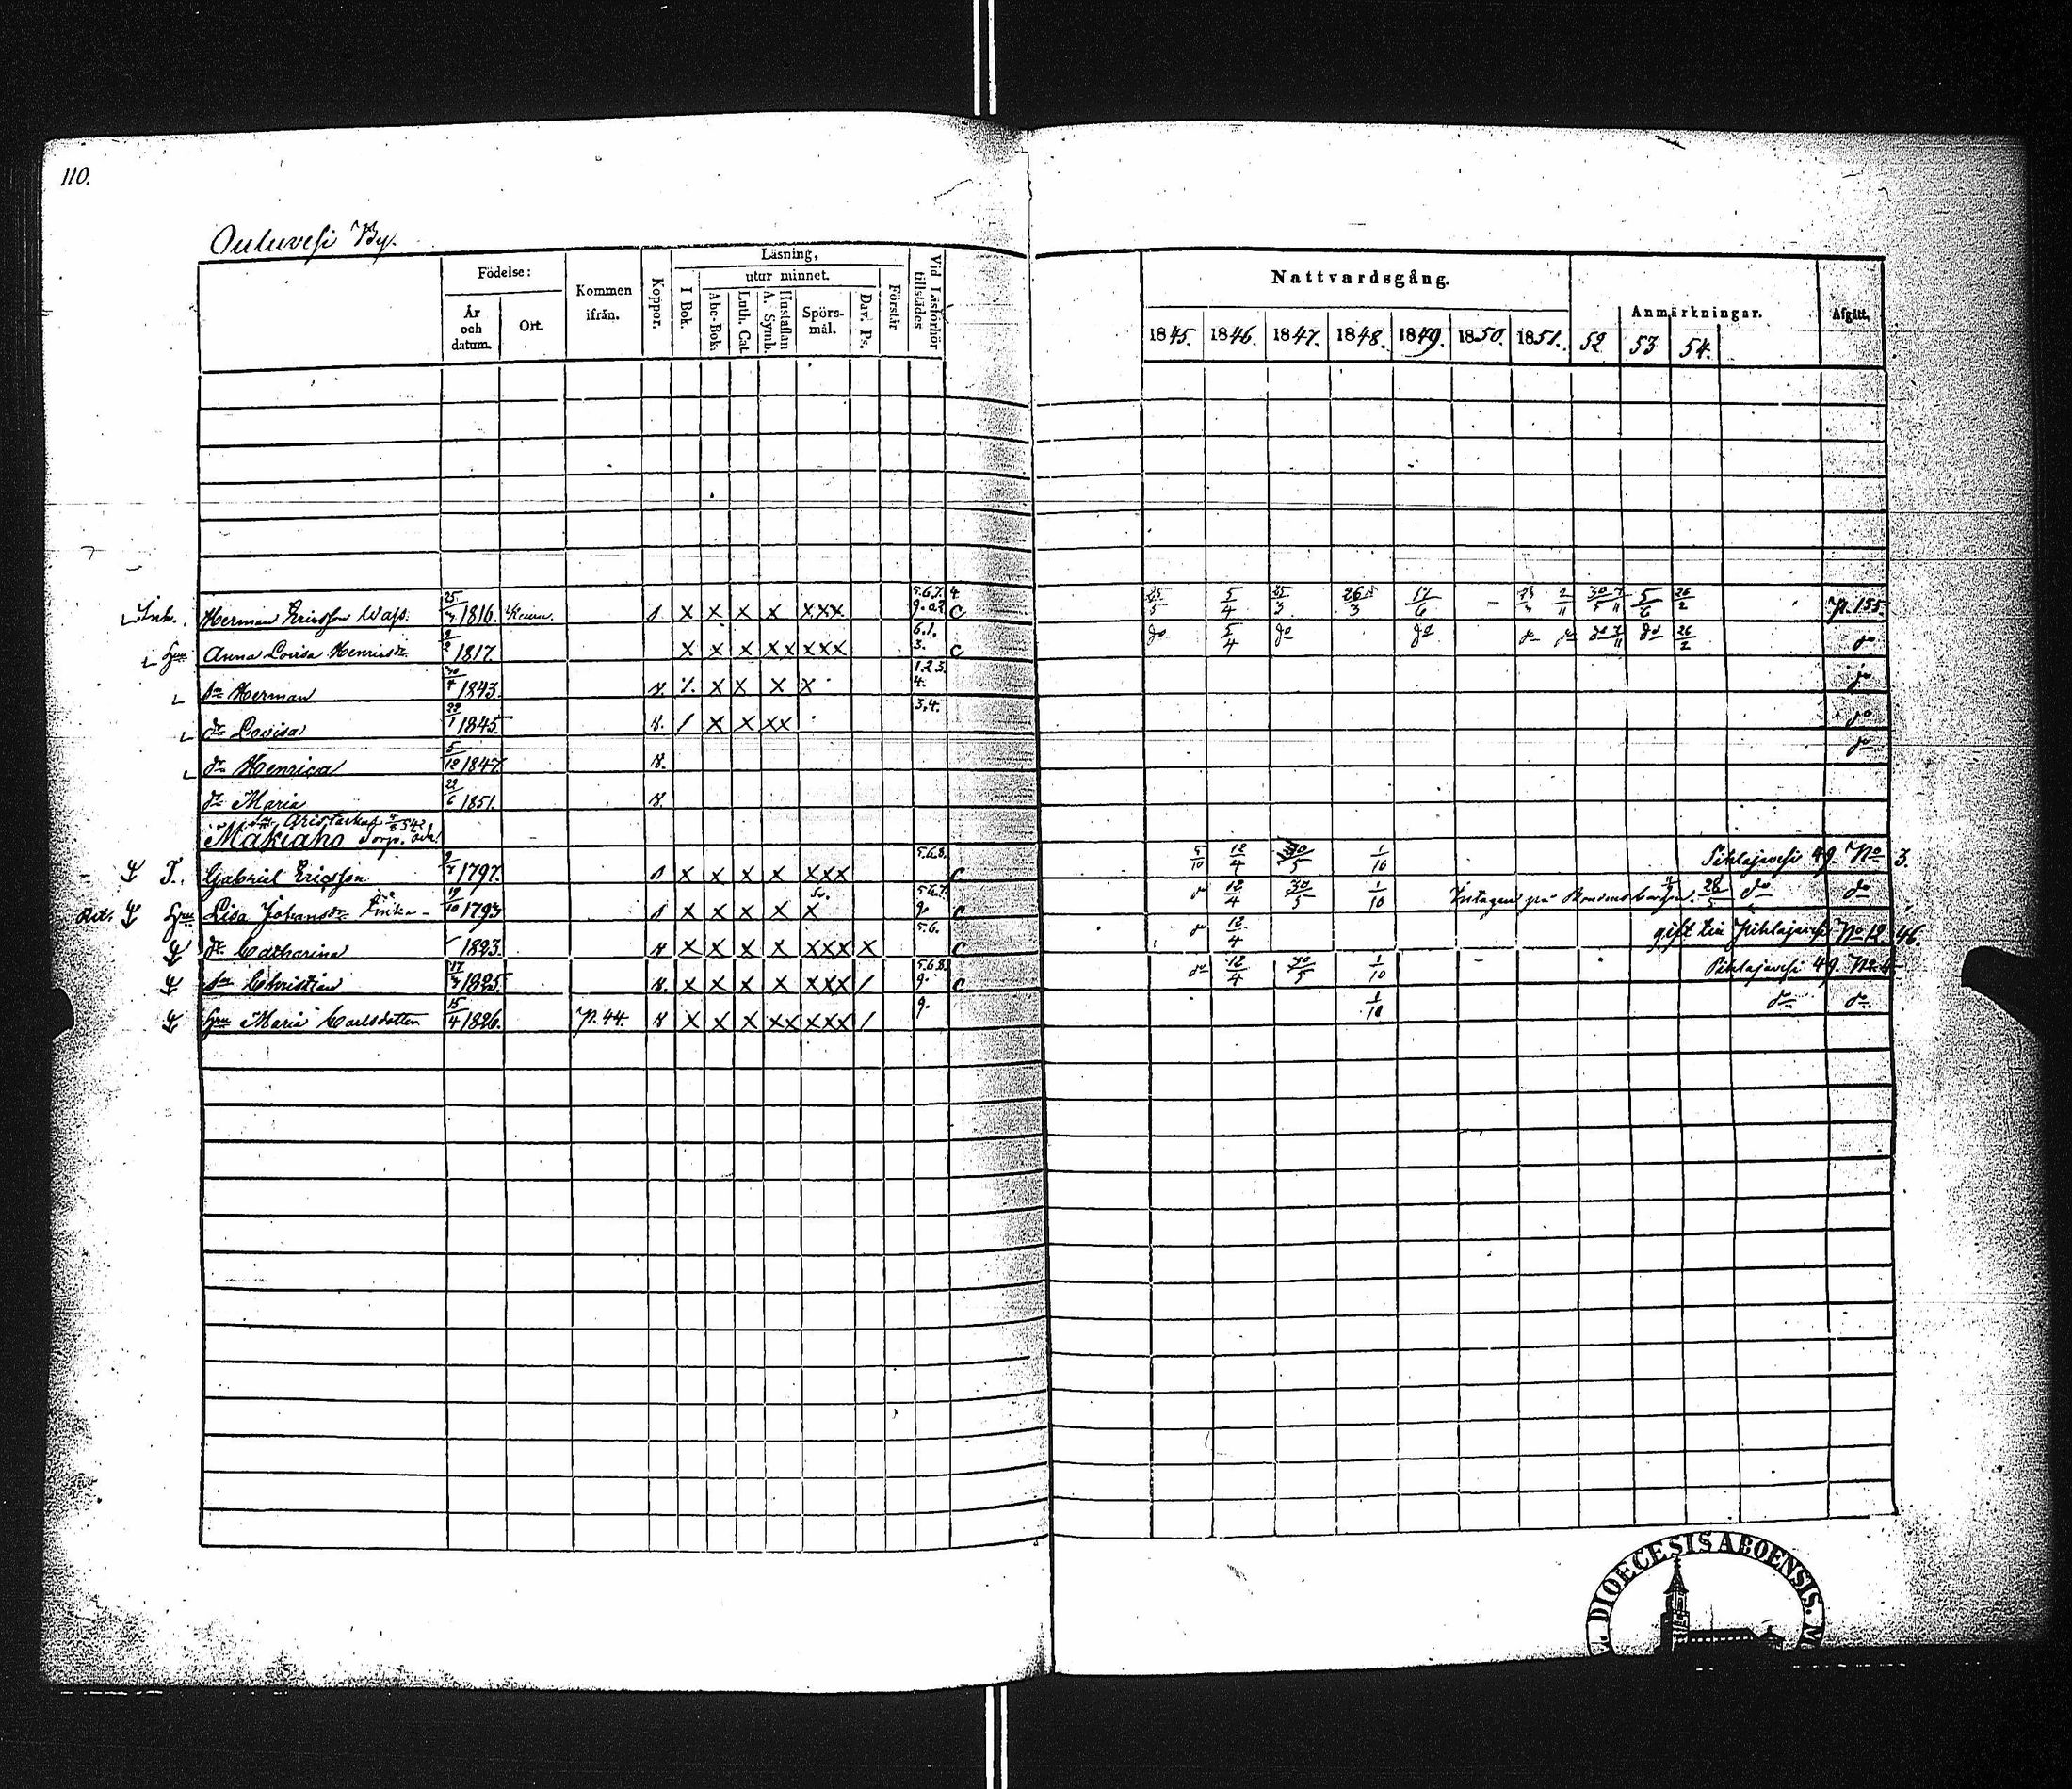 110.
Ouluvesi By.
Födelse:
År och datum.
Ort.
Kommen ifrån.
Koppor.
Läsning,
I Bok.
utur minnet.
Abc-Bok.
Luth. Cat.
Hustaflan A. Symb.
Spörsmål.
Dav. Ps.
Förstår
Vid Läsförhör tillstädes
Nattvardsgång.
1845. 1846. 1847. 1848. 1849. 1850. 1851.
Anmärkningar.
52 53 54.
Afgått.
Inh. Herman Ericsson 1816. x x x x xxx C 5/4 17/6 5/6 26/2 p. 155.
Hru Anna Lovisa Henricsdr 2/2 1817. x x x xx xxx 3. C do 5/4 do do do do do 26/2 do
sn Herman 1843. x x x x 1.2.3. 4. do
dr Lovisa 22/1 1845 / x x xx 3,4. do
dr Henrica 5/12 1847. do
dr Maria 22/6 1851.
Mäkiaho Torp.
T. Gabriel Ericsson 1797. x x x x xxx 5.6.8. C 5/10 12/4 30/5 1/10 Pihlajavesi 49. No 3.
Hru Lisa Johansdr 19/10 1793 x x x x x Sv. 5.6.7. 9. C do 12/4 30/5 1/10 Intagen på do do
dr Catharina 1823. x x x x xxx x 5.6. C do 12/4 gift till Pihlajavesi No 12. 46.
sn Christian 1825 x x x x xxx / 5.6.8. 9. C do 12/4 30/5 1/10 Pihlajavesi 49. No
Hru Maria Carlsdotter 15/4 1826. p. 44. x x x xx xxx / 9. 1/10 do do
DIOECESIS ABOENSIS.